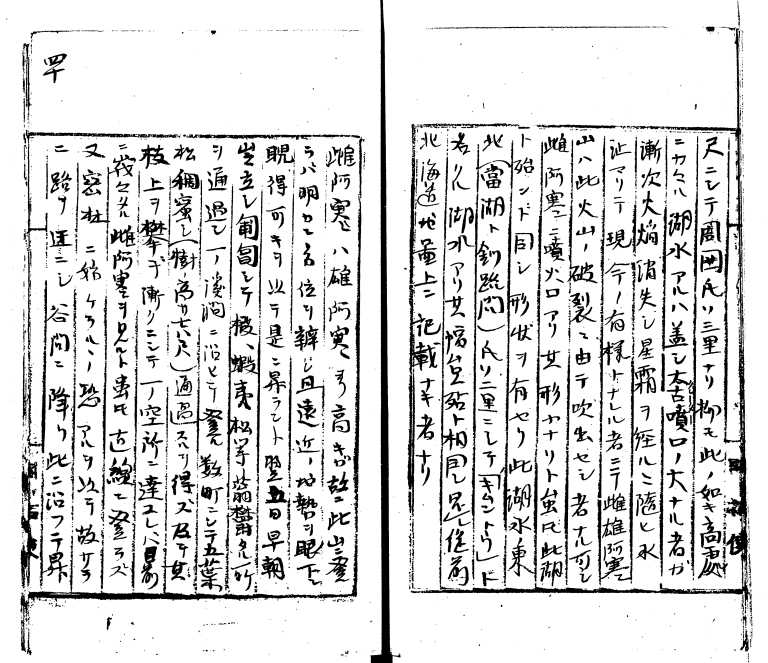 尺ニシテ周囲凡ソ三里ナリ抑モ此ノ如キ高處
ニカヽル湖水アルハ蓋シ太古噴口ノ大ナル者ガ
漸次火焔消失シ星霜ヲ経ルニ隨ヒ水
止マリテ現今ノ有様トナレル者ニテ雌雄阿寒
山ハ此火山ノ破裂ニ由テ吹出セシ者ナル可シ
雌阿寒ニ噴火口アリ其形小ナリト虽モ此湖
ト殆ンド同シ形状ヲ有セリ此湖水東
北(當湖ト釧路間)凡ソ二里ニシテ「キウントウ」ト
名クル湖水アリ其幅員殆ト相同シ是レ従前
北海道地圖上ニ記載ナキ者ナリ
四十
雌阿寒ハ雄阿寒ヨリ高キガ故ニ此山ニ登
ラバ明カニ各位ヲ辨シ且遠近ノ地勢ヲ眼下ニ
睨得可キヲ以テ是ニ昇ラント翌五日早朝
出立シ匍匐シテ椴、蝦夷松等蓊欝タル所
ヲ通過シ一ノ溪澗ニ沿ヒテ登ル数町ニシテ五葉
松稠蜜シ(樹ノ高サ七八尺)通過スルヲ得ズ及テ其
枝上ヲ攀ヂ漸クニシテ一ノ空所ニ達スレバ目前
ニ峩々タル雌阿寒ヲ見ルト虽モ直線ニ登ラズ
又密林ニ始ケラルヽノ恐アルヲ以テ故サラ
ニ路ヲ迂ニシ谷間ニ降リ此ニ沿フテ昇